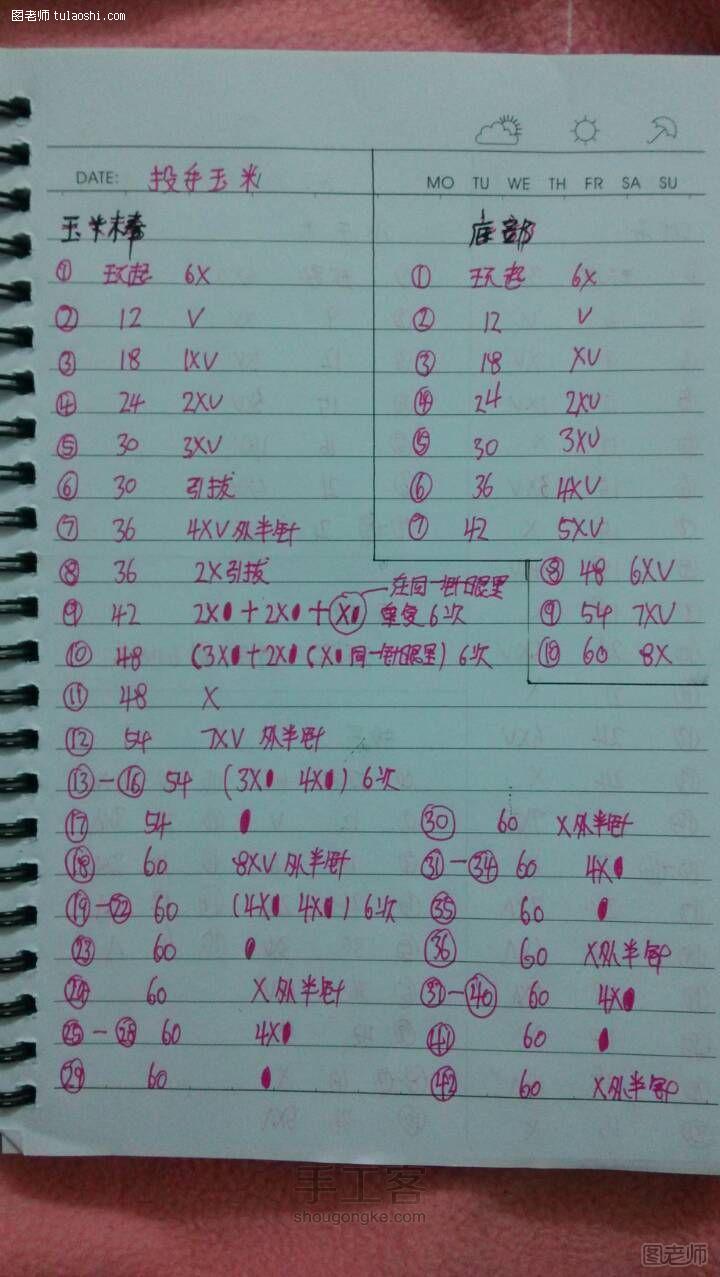 图老师 tulaoshi.com
DATE: 投手玉米
MO TU WE TH FR SA SU
玉米棒
① 环起 6X
② 12 V
③ 18 1XV
④ 24 2XV
⑤ 30 3XV
⑥ 30 引拔
⑦ 36 4XV 外半针
⑧ 36 2X引拔
在同一针眼里
⑨ 42 2X● + 2X● + X● 重复6次
⑩ 48 (3X● + 2X● (X● 同一针眼里) 6次
⑪ 48 X
⑫ 54 7XV 外半针
⑬-⑯ 54 (3X● 4X●) 6次
⑰ 54 ●
⑱ 60 8XV 外半针
⑲-㉒ 60 (4X● 4X●) 6次
㉓ 60 ●
㉔ 60 X外半针
㉕-㉘ 60 4X●
㉙ 60 ●
底部
① 环起 6X
② 12 V
③ 18 XV
④ 24 2XV
⑤ 30 3XV
⑥ 36 4XV
⑦ 42 5XV
⑧ 48 6XV
⑨ 54 7XV
⑩ 60 8X
㉚ 60 X外半针
㉛-㉞ 60 4X●
㉟ 60 ●
㊱ 60 X外半针
㊲-㊵ 60 4X●
㊶ 60 ●
㊷ 60 X外半针
手工客
shougongke.com
图老师